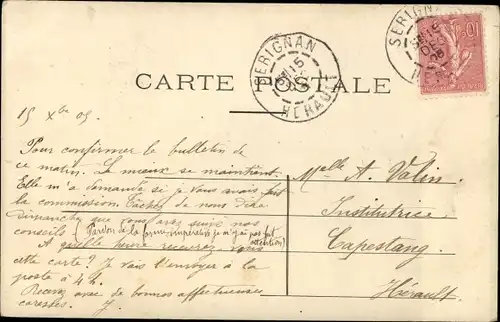 CARTE POSTALE
SERIGNAN
15
05
HERAULT
SERIGNAN
15
05
10
15 Xbre 05
Pour confirmer le bulletin de
ce matin. Le mieux se maintient.
Elle m'a demandé si je vous avais fait
la commission. Tâchez de nous dire
dimanche que vous avez suivi nos
conseils (Pardon de la forme impérative je n'y ai pas fait
attention)
A quelle heure recevrez vous
cette carte? Je vais l'envoyer à la
poste à 4h.
Recevez avec de bonnes affectueuses
caresses. J.
Melle A. Valin
Institutrice
Capestang
Hérault